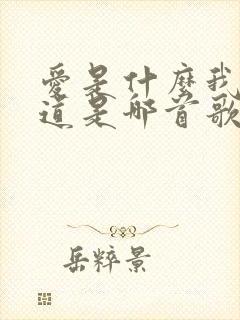 愛是什麼我
道是哪首歌
岳粹景